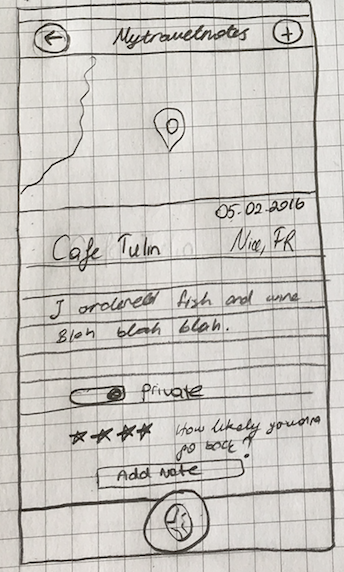 Mytravelnotes
05.02.2016
Cafe Tulin
Nice, FR
I ordered fish and wine
Blah blah blah.
Private
How likely you wanna
go back?
Add Note